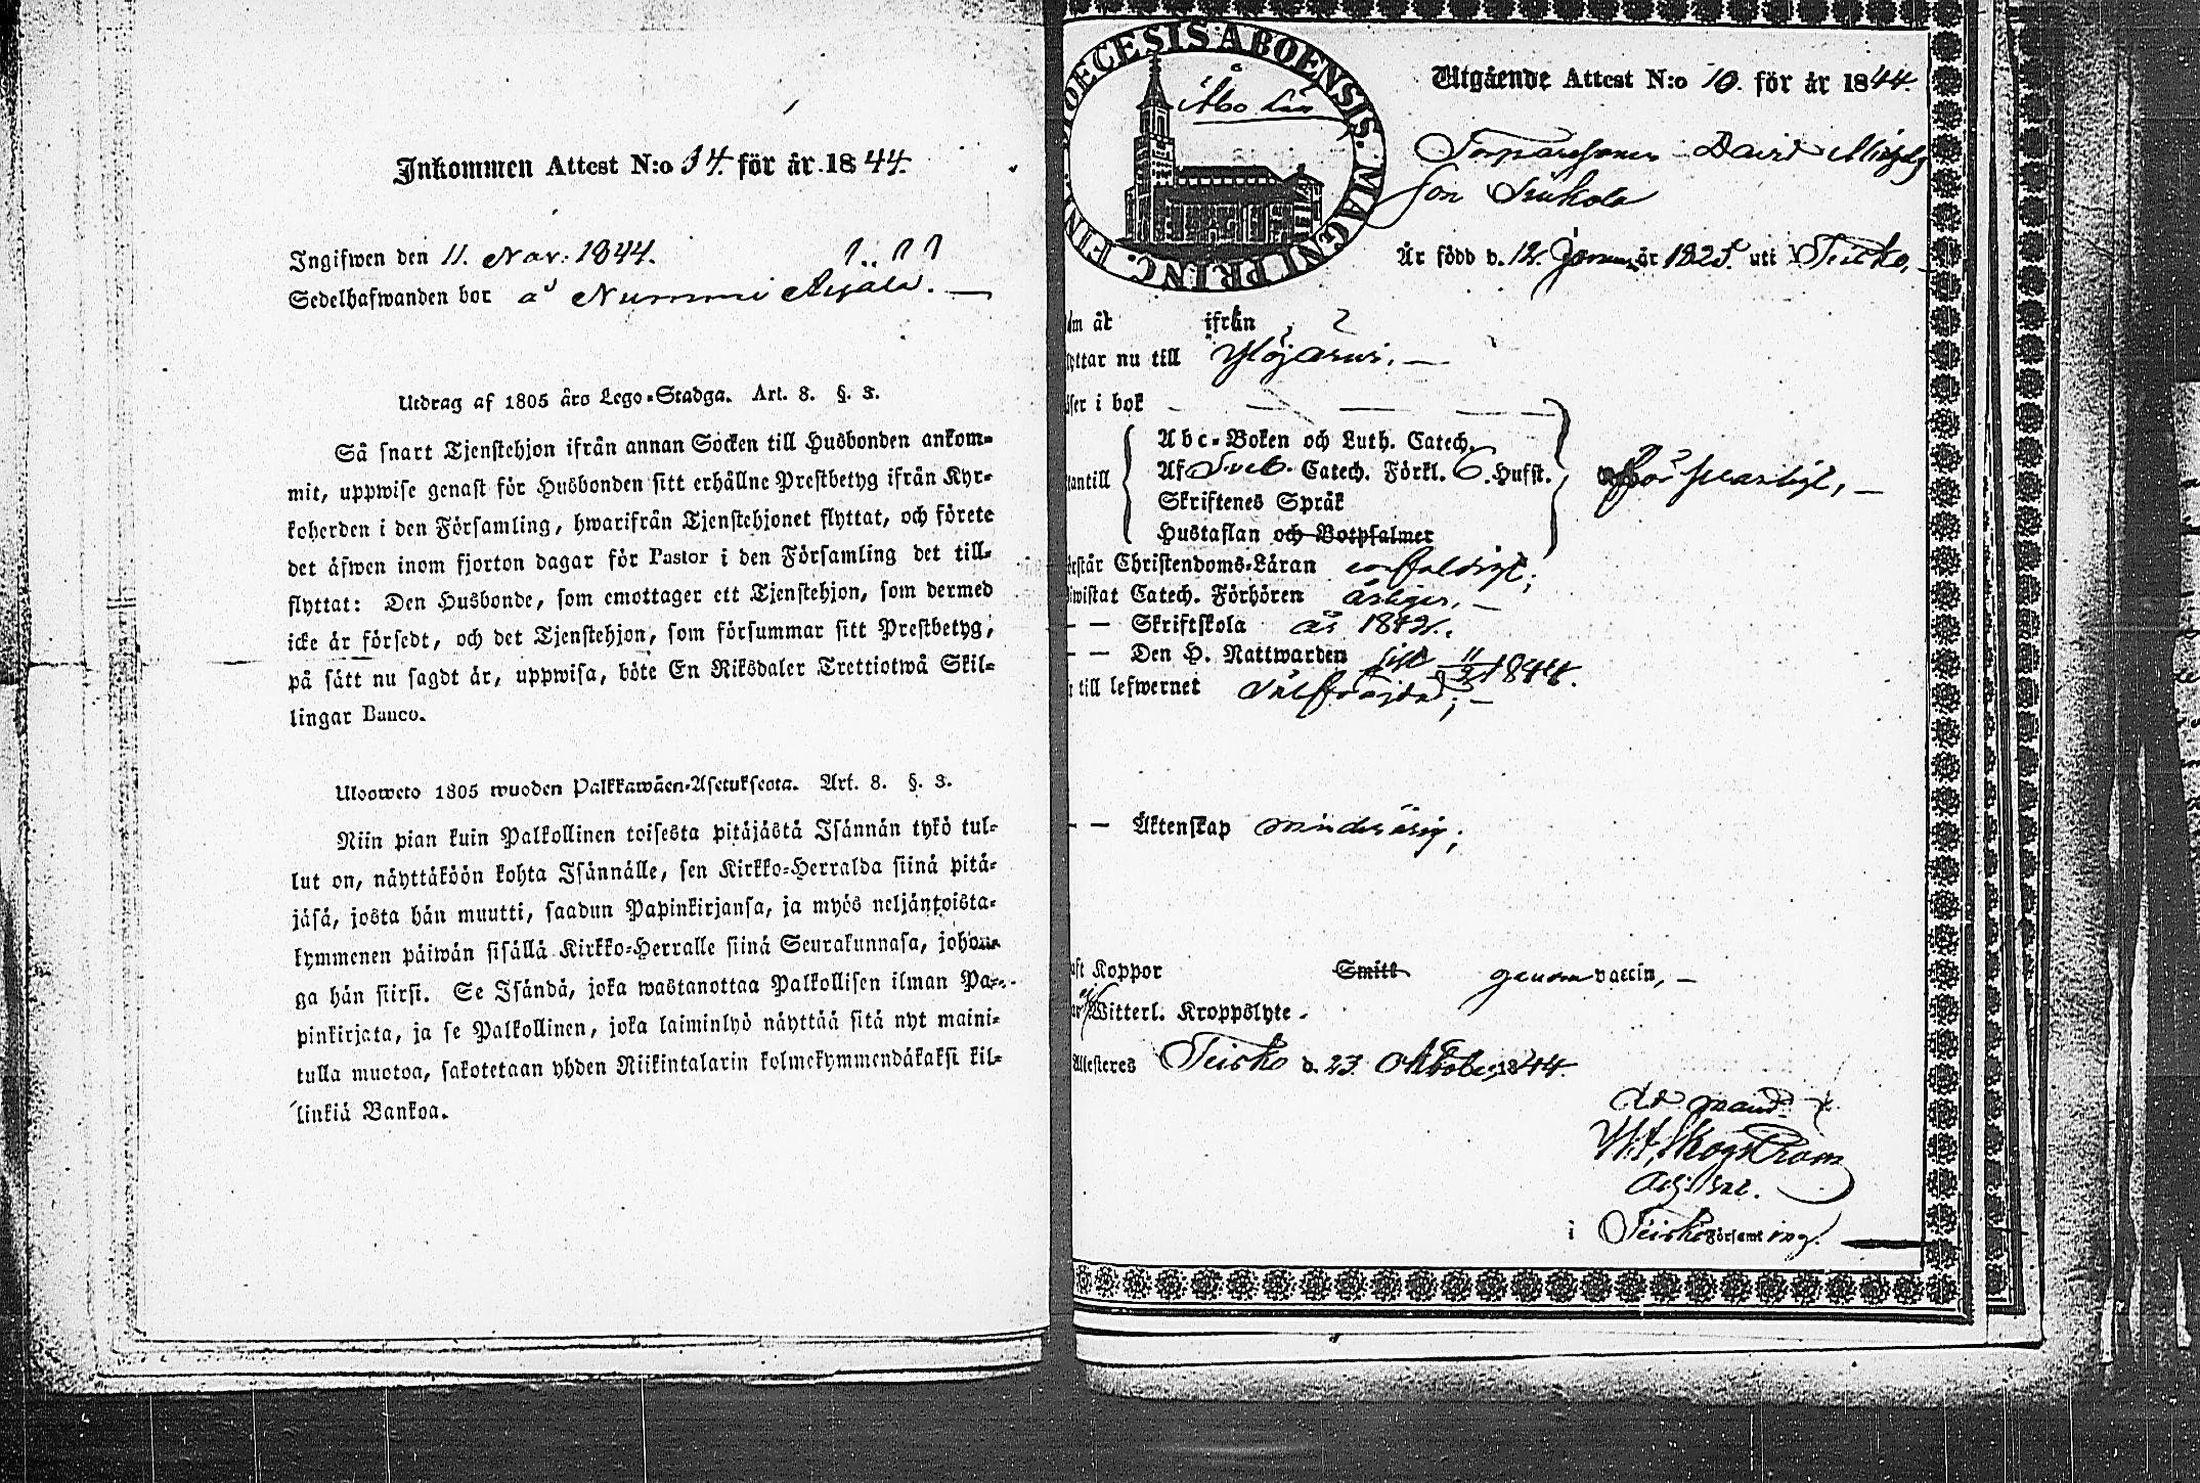 Inkommen Attest N:o 34. för år 1844.
Ingifwen den 11. Nov. 1844.
Sedelhafwanden bor å Nummi
Utdrag af 1805 års Lego-Stadga. Art. 8. §. 3.
Så snart Tjenstehjon ifrån annan Socken till Husbonden ankom-
mit, uppwise genast för Husbonden sitt erhållne Prestbetyg ifrån Kyr-
koherden i den Församling, hwarifrån Tjenstehjonet flyttat, och förete
det äfwen inom fjorton dagar för Pastor i den Församling det till-
flyttat: Den Husbonde, som emottager ett Tjenstehjon, som dermed
icke är försedt, och det Tjenstehjon, som försummar sitt Prestbetyg,
på sätt nu sagdt är, uppwisa, böte En Riksdaler Trettiotwå Skil-
lingar Banco.
Ulosweto 1805 wuoden Palkkawäen-Asetuksesta. Art. 8. §. 3.
Niin pian kuin Palkollinen toisesta pitäjästä Isännän tykö tul-
lut on, näyttäköön kohta Isännälle, sen Kirkko-Herralda siinä pitä-
jäsä, josta hän muutti, saadun Papinkirjansa, ja myös neljäntoista-
kymmenen päiwän sisällä Kirkko-Herralle siinä Seurakunnasa, johon-
ga hän siirsi. Se Isändä, joka wastanottaa Palkollisen ilman Pa-
pinkirjata, ja se Palkollinen, joka laiminlyö näyttää sitä nyt maini-
tulla muotoa, sakotetaan yhden Riikintalarin kolmekymmendäkaksi kil-
linkiä Bankoa.
DIOECESIS ABOENSIS. MAGNI PRINC. FIN
Åbo Län
Utgående Attest N:o 10. för år 1844.
Torparesonen David Michels
son
Är född d. 12. Januari år 1825. uti Teisko.
om år ifrån
yttar nu till Ylöjärvi.
äser i bok
Abc-Boken och Luth. Catech.
utantill Af Sveb. Catech. Förkl. 6. Hufst. försvarligt,
Skriftenes Språk
Hustaflan och Botpsalmer
rstår Christendoms-Läran enfaldigt;
iwistat Catech. Förhören årligen,
— — Skriftskola år 1842.
— — Den H. Nattwarden sist 11/8 1844.
till lefwernet välfräjdad;
— — Äktenskap minderårig;
aft Koppor Smitt genom vaccin,
är Witterl. Kroppslyte.
Attesteres Teisko d. 23. Oktober 1844.
ad mand.
Adjunct.
i Teisko Församling.